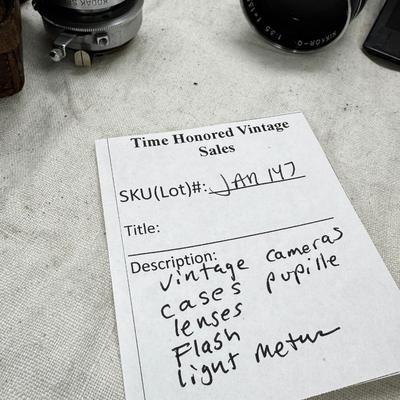 KODAK
NIKKOR-Q 1:3.5
Time Honored Vintage
Sales
SKU(Lot)#: JAN 147
Title:
Description:
vintage cameras
cases pupille
lenses
Flash
light meter